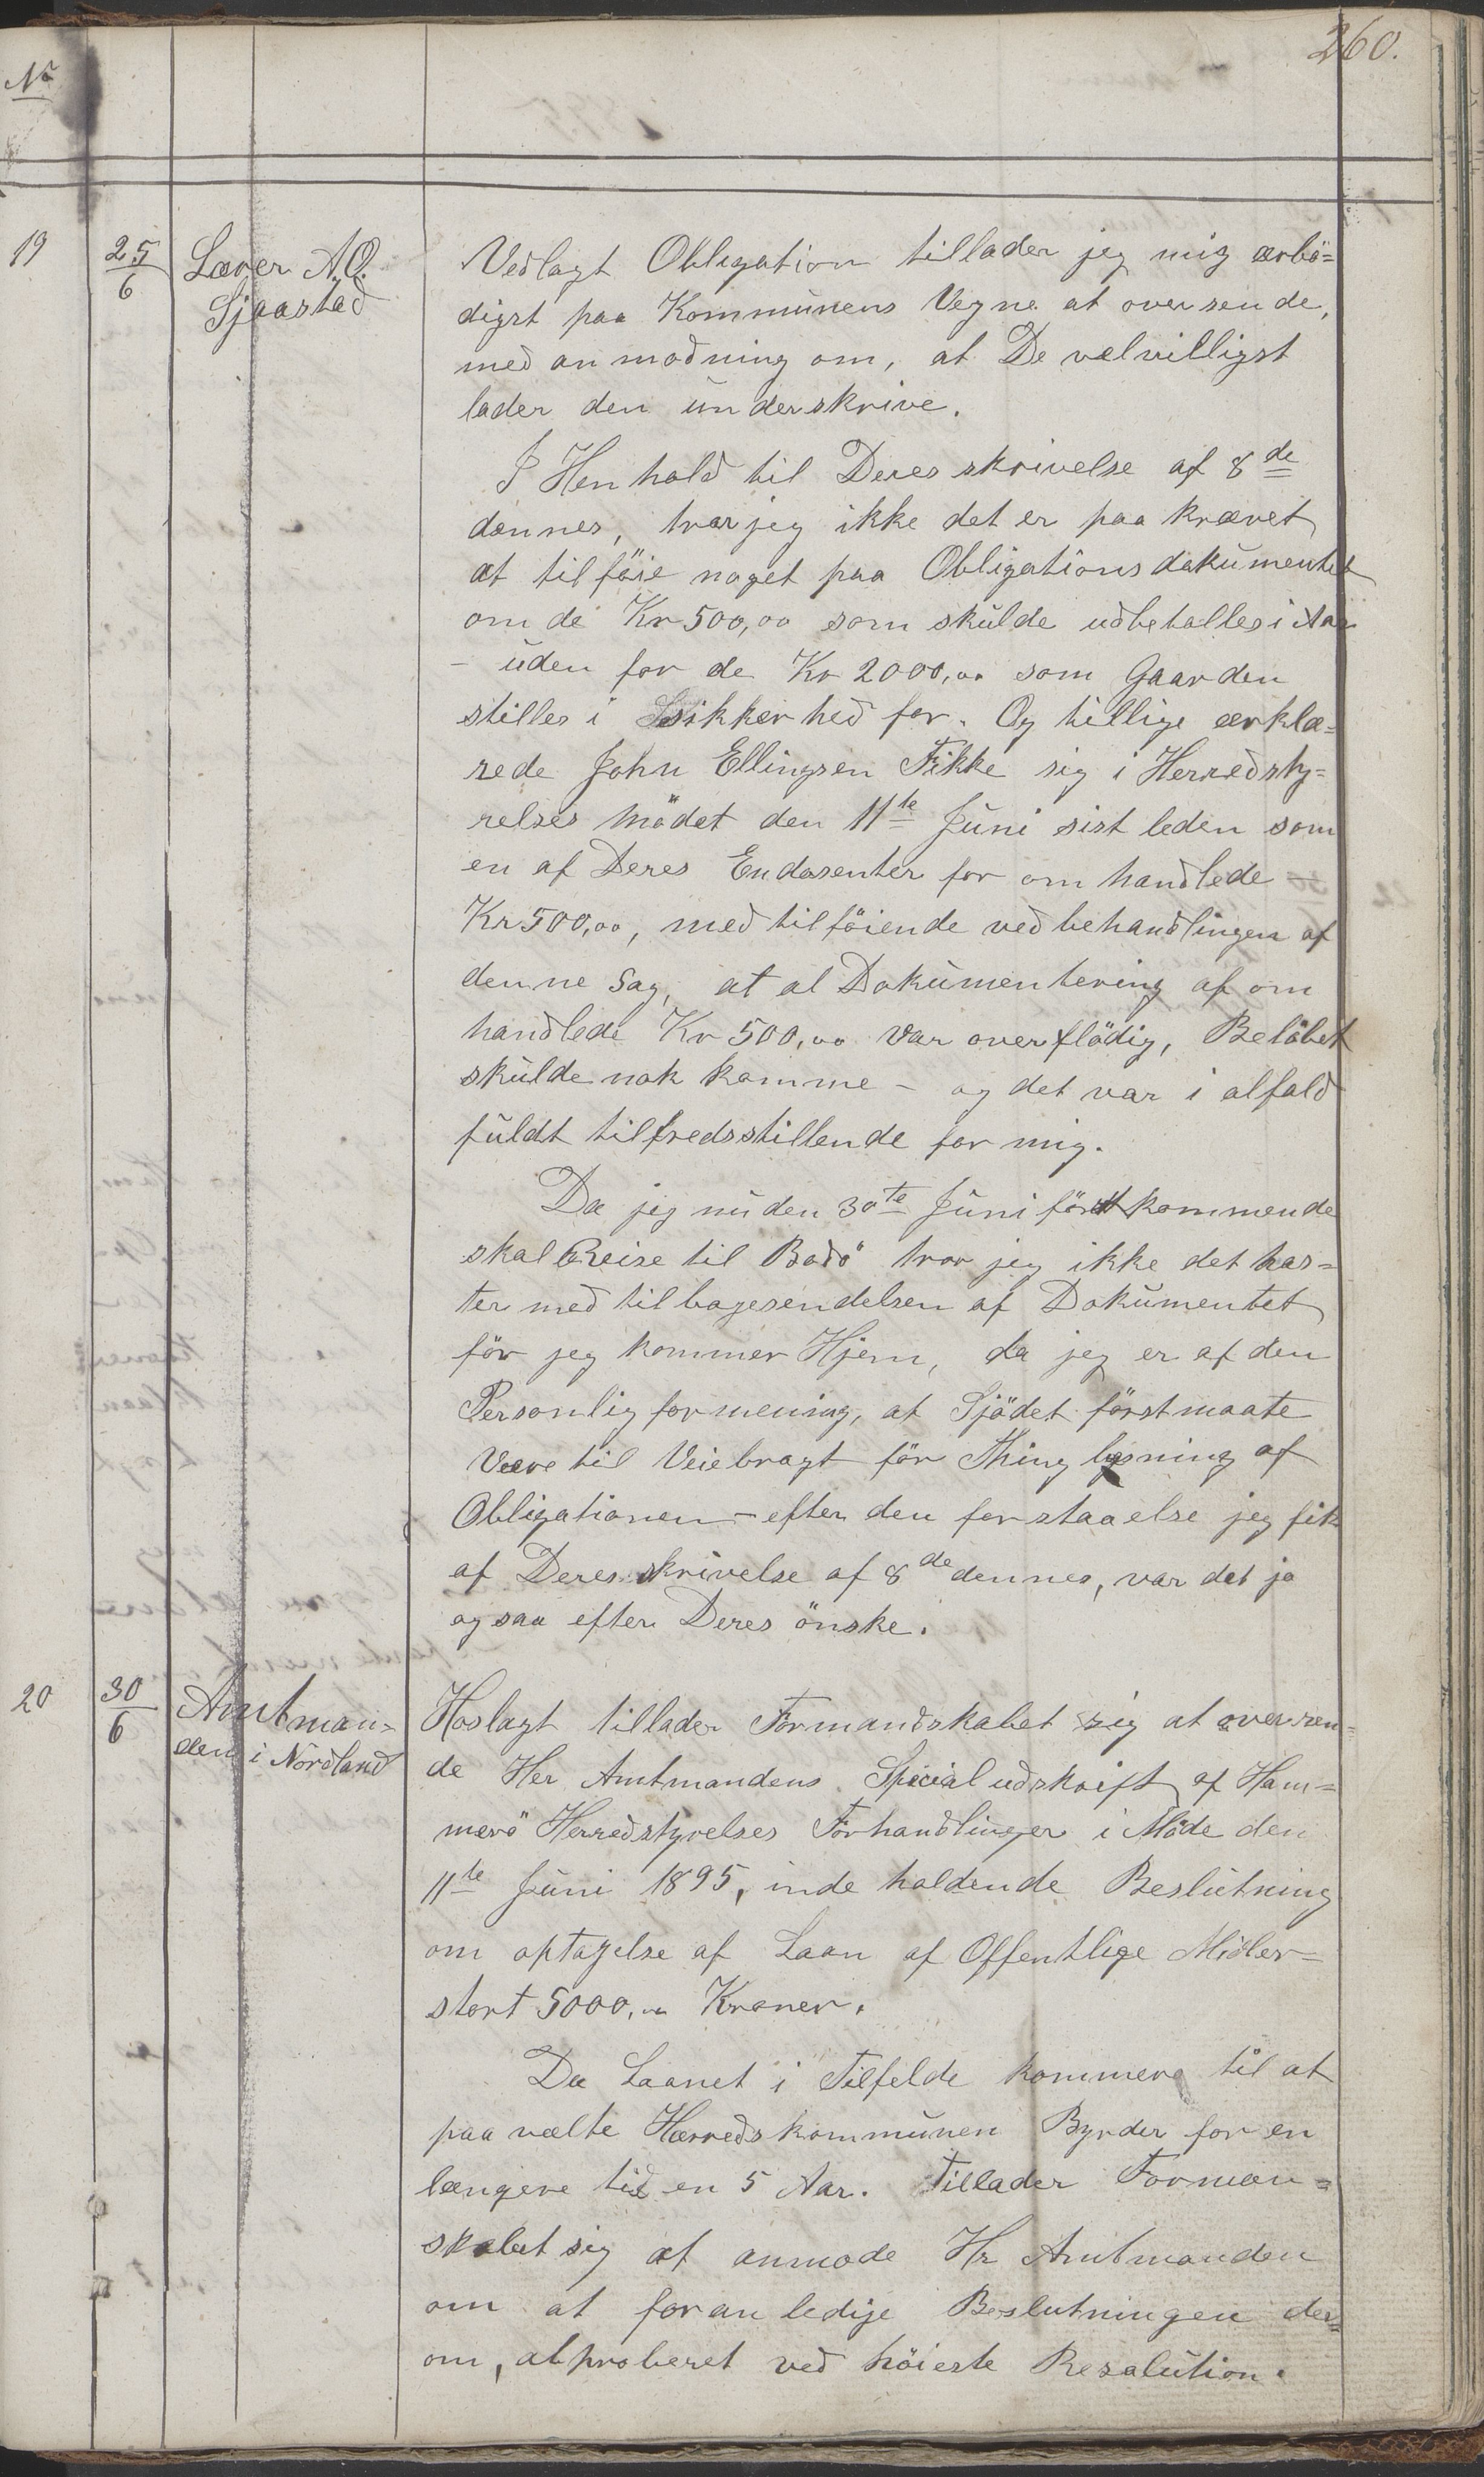 260.
No
19
25/6
Lærer A.O.
Sjaastad
Vedlagt Obligation tillader jeg mig ærbö=
digst paa Kommunens Vegne at oversende,
med anmodning om, at De velvilligst
lader den underskrive.
I Henhold til Deres skrivelse af 8de
dennes, tror jeg ikke det er paa krævet
at tilföie noget paa Obligationsdokumentet
om de Kr 500,00 som skulde udbetalles i Aar
- uden for de Kr 2000,00 som Gaarden
stilles i Sikkerhed for. Og tillige erklæ=
rede John Ellingsen Fikke sig i Herredsty=
relses mödet den 11te Juni sist leden som
en af Deres Endosenter for om handlede -
Kr 500,00, med tilföiende ved behandlingen af
denne Sag, at al Dokumentering af om
handlede Kr 500,00 var overflödig, Belöbet
skulde nok komme - og det var i alfald
fuldt tilfredsstillende for mig.
Da jeg nu den 30te Juni förstkommende
skal Reise til Bodö tror jeg ikke det has=
ter med tilbagesendelsen af Dokumentet
för jeg kommer Hjem, da jeg er af den
Personlig formening, at Sjödet först maate
Være til Veiebragt för Thinglysning af
Obligationen - efter den forstaaelse jeg fik
af Deres skrivelse af 8de dennes, var det jo
ogsaa efter Deres önske.
20
30/6
Amtman=
den i Nordland
Hoslagt tillader Formandskabet sig at oversen=
de Her Amtmandens Specialudskrift af Ham=
merö Herredstyrelses Forhandlinger i Möde den
11te Juni 1895, inde holdende Beslutning
om optagelse af Laan af Offentlige Midler=
stort 5000,00 Kroner.
Da Laanet i Tilfelde kommer til at
paa vælte Herredskommunen Byrder for en
længere tid en 5 Aar. Tillader Forman=
skabet sig at anmode Hr Amtmanden
om at foran ledige Beslutningen der=
om, abproberet ved höieste Resolution.